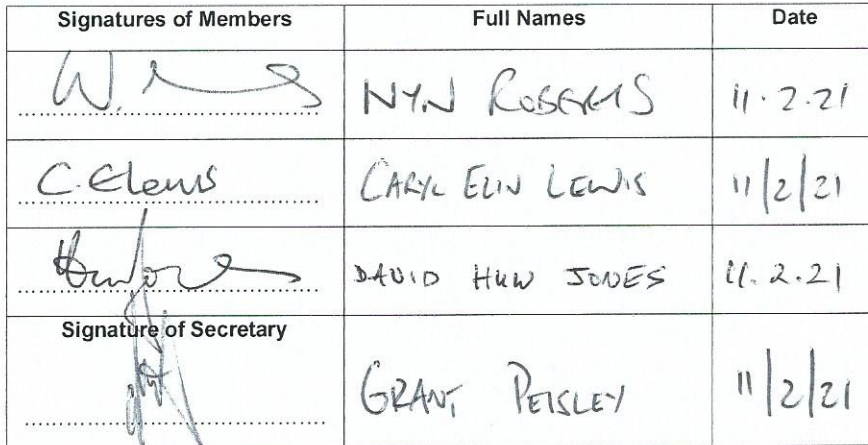 Signatures of Members Full Names Date
NYN ROBERTS 11.2.21
C. E Lewis CARYL ELIN LEWIS 11/2/21
DAVID HUW JONES 11.2.21
Signature of Secretary
GRANT PEISLEY 11/2/21